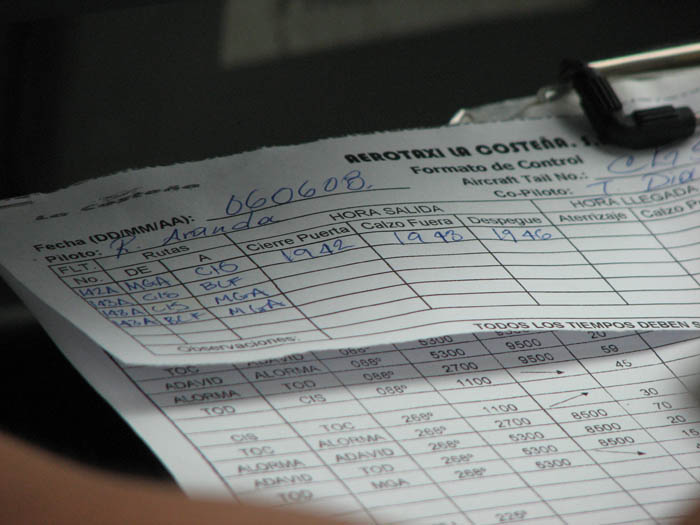 AEROTAXI LA COSTEÑA, S.
La Costeña Formato de Control
Aircraft Tail No.:
Fecha (DD/MM/AA): 060608. Co-Piloto: T. Dia
Piloto: R. Aranda HORA SALIDA HORA LLEGADA
FLT. No. Rutas DE A Cierre Puerta Calzo Fuera Despegue Aterrizaje Calzo P
142A MGA CIS 1942 1943 1946
143A CIS BCF
143A CIS MGA
143A BCF MGA
Observaciones:
TODOS LOS TIEMPOS DEBEN
TOC ADAVID 088º 5300 9500 20
ADAVID ALORMA 088º 5300 9500 59
ALORMA TOD 088º 2700 45
TOD CIS 1100
CIS TOC 268º 1100 30
TOC ALORMA 268º 2700 8500 70
ALORMA ADAVID 268º 5300 8500 20
ADAVID TOD 268º 5300 8500 15
TOD MGA 5300
225º